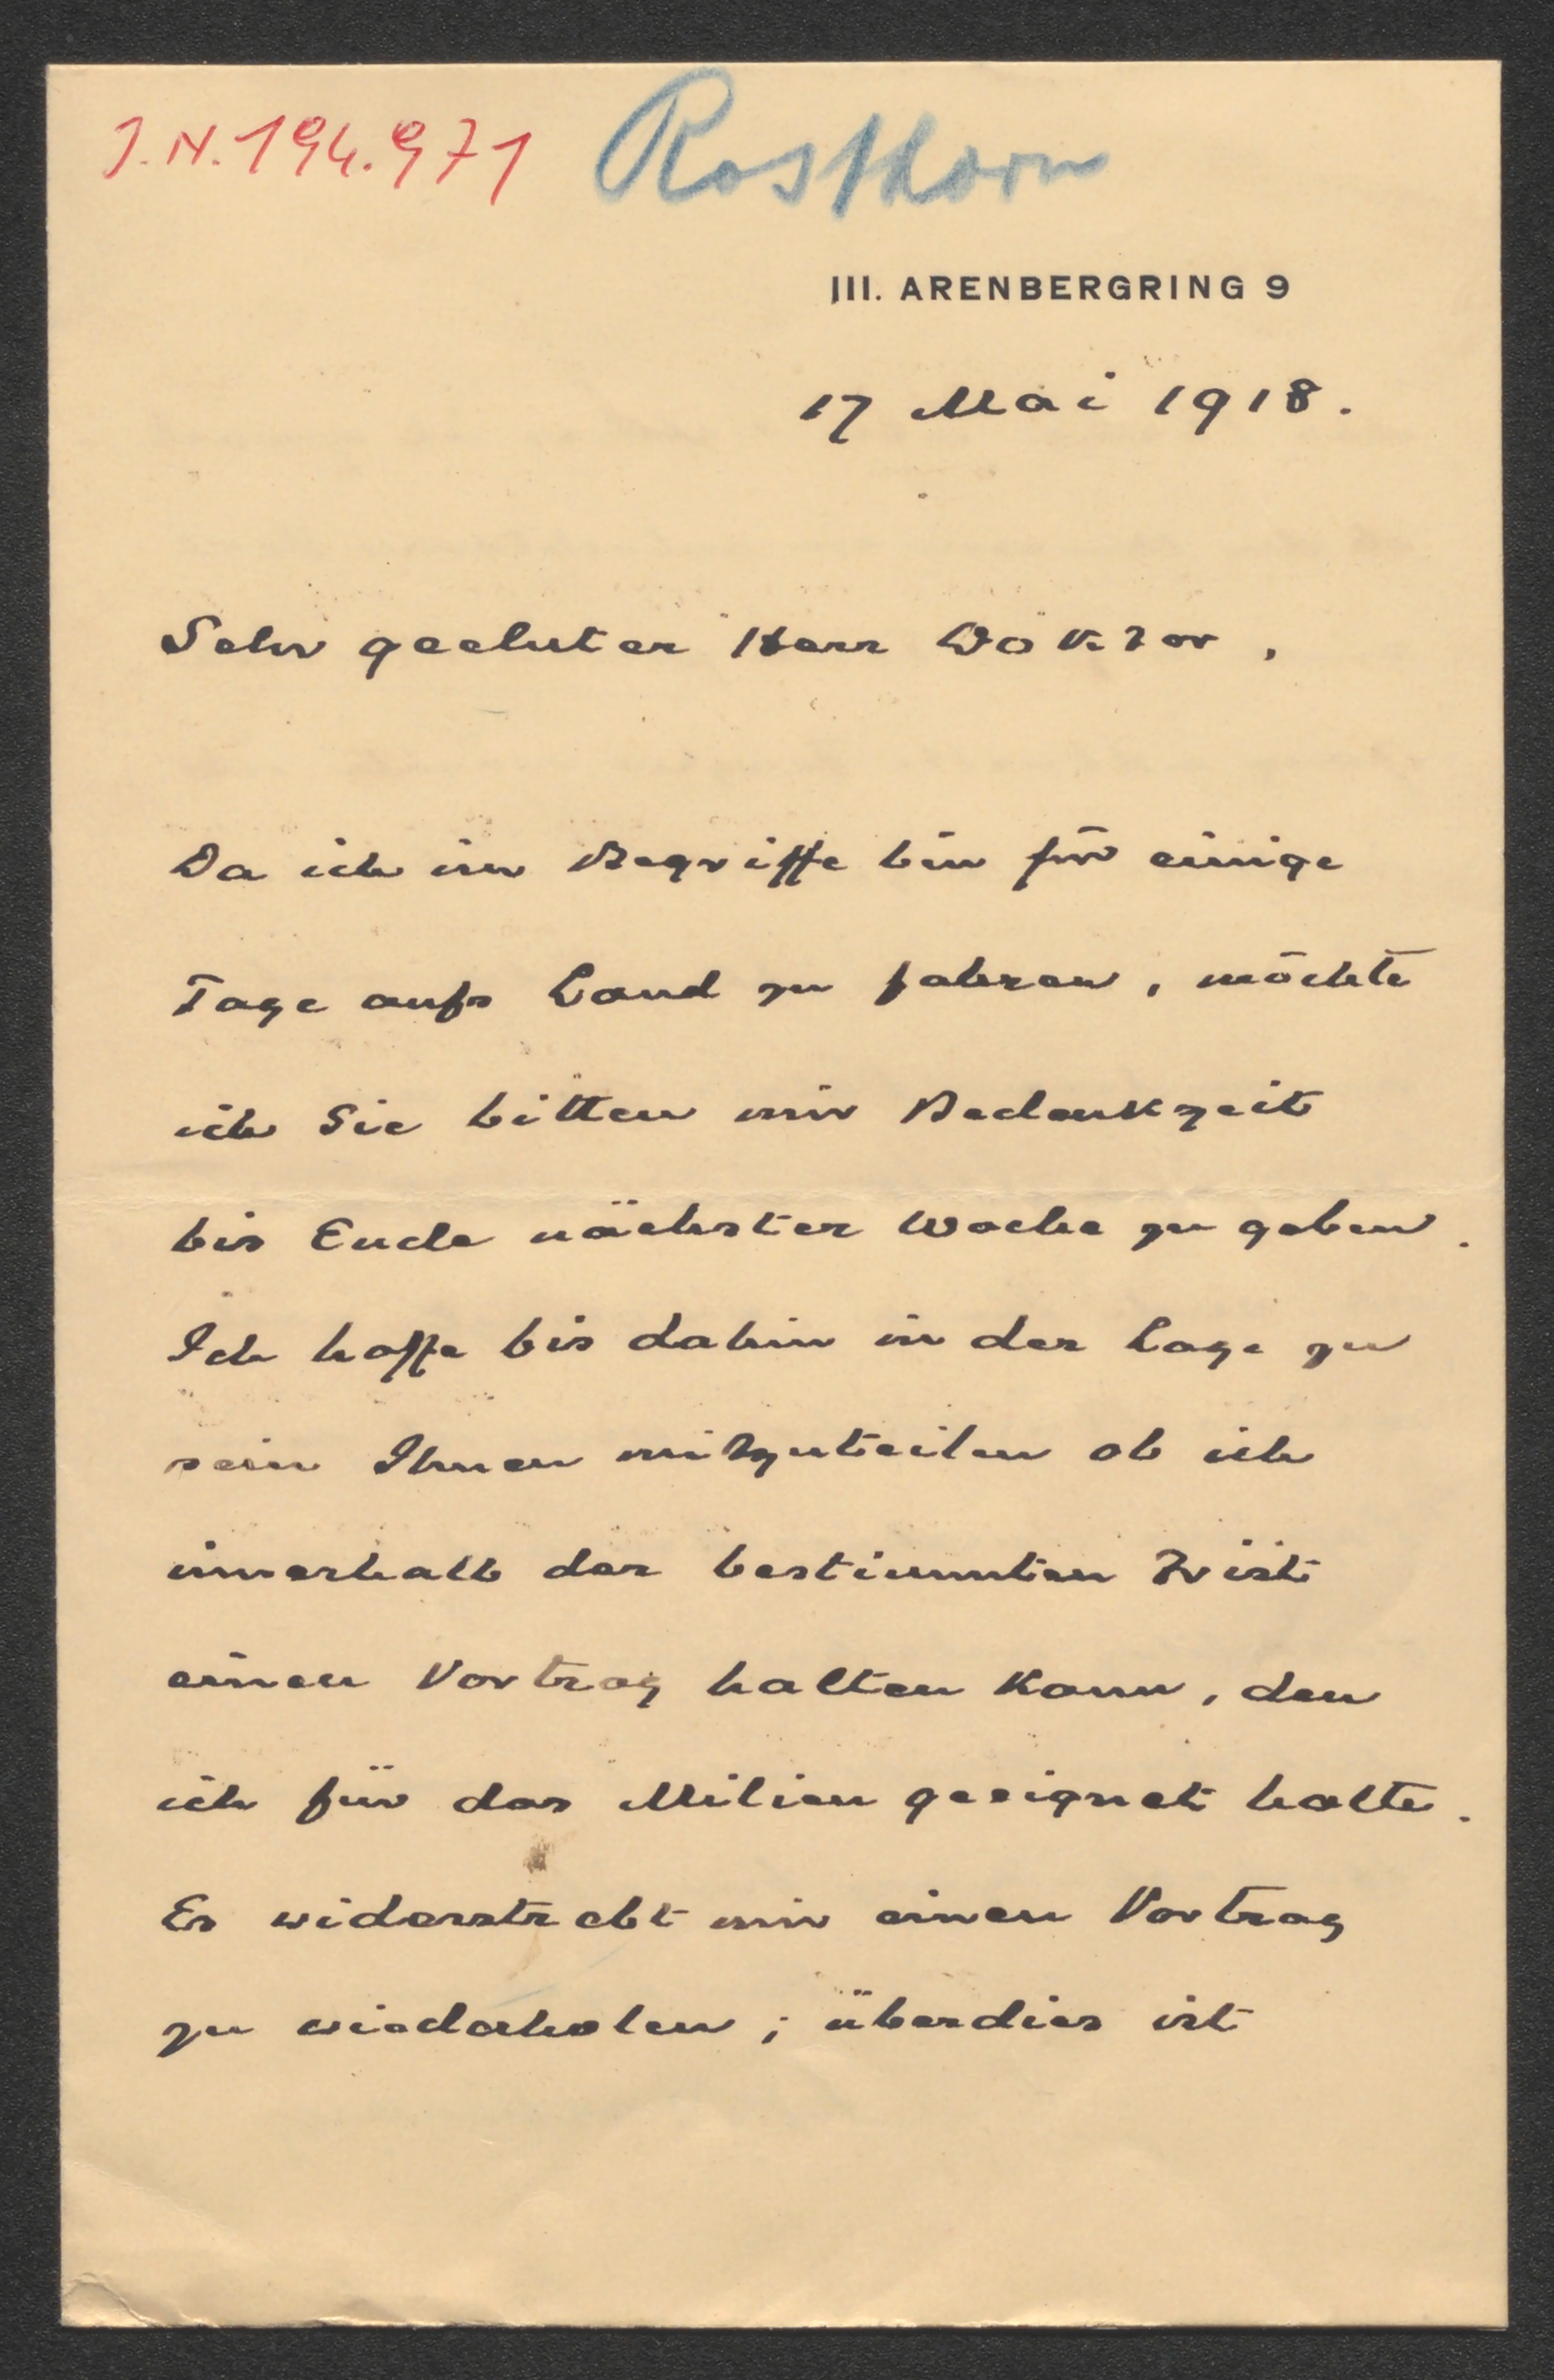 J.N. 194.971 Rosthorn
III. ARENBERGRING 9
17 Mai 1918.
Sehr geehrter Herr Doktor,
Da ich im Begriffe bin für einige
Tage aufs Land zu fahren, möchte
ich Sie bitten mir Bedenkzeit
bis Ende nächster Woche zu geben.
Ich hoffe bis dahin in der Lage zu
sein Ihnen mitzuteilen ob ich
innerhalb der bestimmten Frist
einen Vortrag halten kann, den
ich für das Milieu geeignet halte.
Es widerstrebt mir einen Vortrag
zu wiederholen; überdies ist